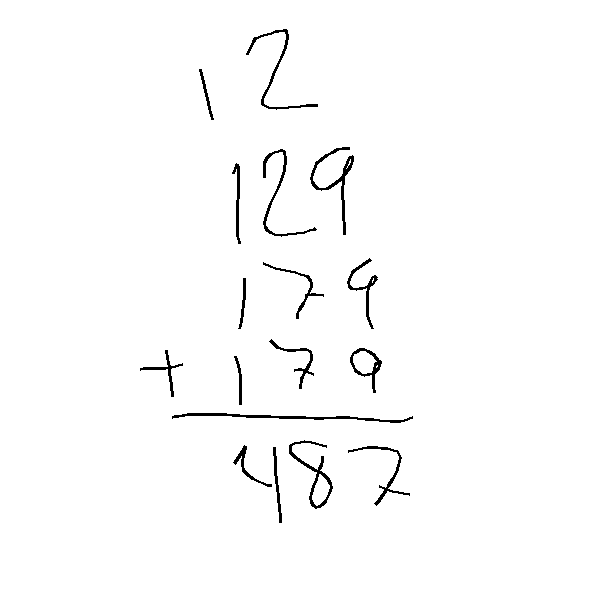 12
129
179
+ 179
487